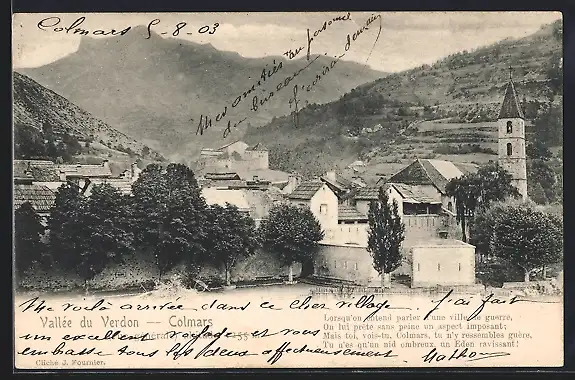 Colmars 5-8-03
Mes amitiés au personel
du bureau. J'écrirai demain
Me voilà arrivée, dans ce cher village, j'ai fait
un excellent voyage et vous
embrasse tous les deux affectueusement
Vallée du Verdon — Colmars
Lorsqu'on entend parler d'une ville de guerre,
On lui prête sans peine un aspect imposant;
Mais toi, vois-tu, Colmars, tu n'y ressembles guère,
Tu n'es qu'un nid ombreux, un Eden ravissant!
Cliché J. Fournier.